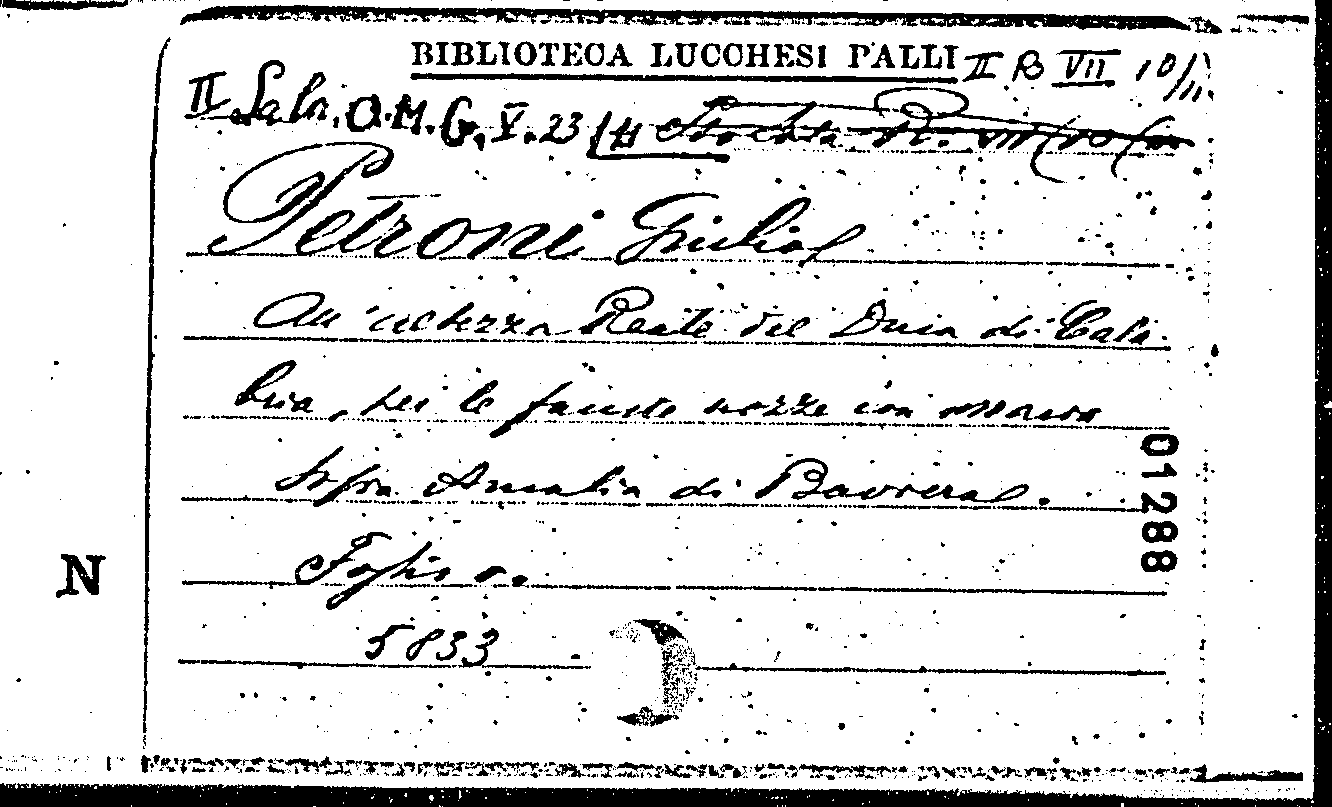 BIBLIOTECA LUCCHESI PALLI II B VII 10/
II Sala. O.M. G. V. 23 (4
Petroni Giulio
All'altezza Reale del Duca di Cala-
bria, per le fauste nozze con Maria
Sofia Amalia di Baviera.
Foglio v.
5833
01288
N